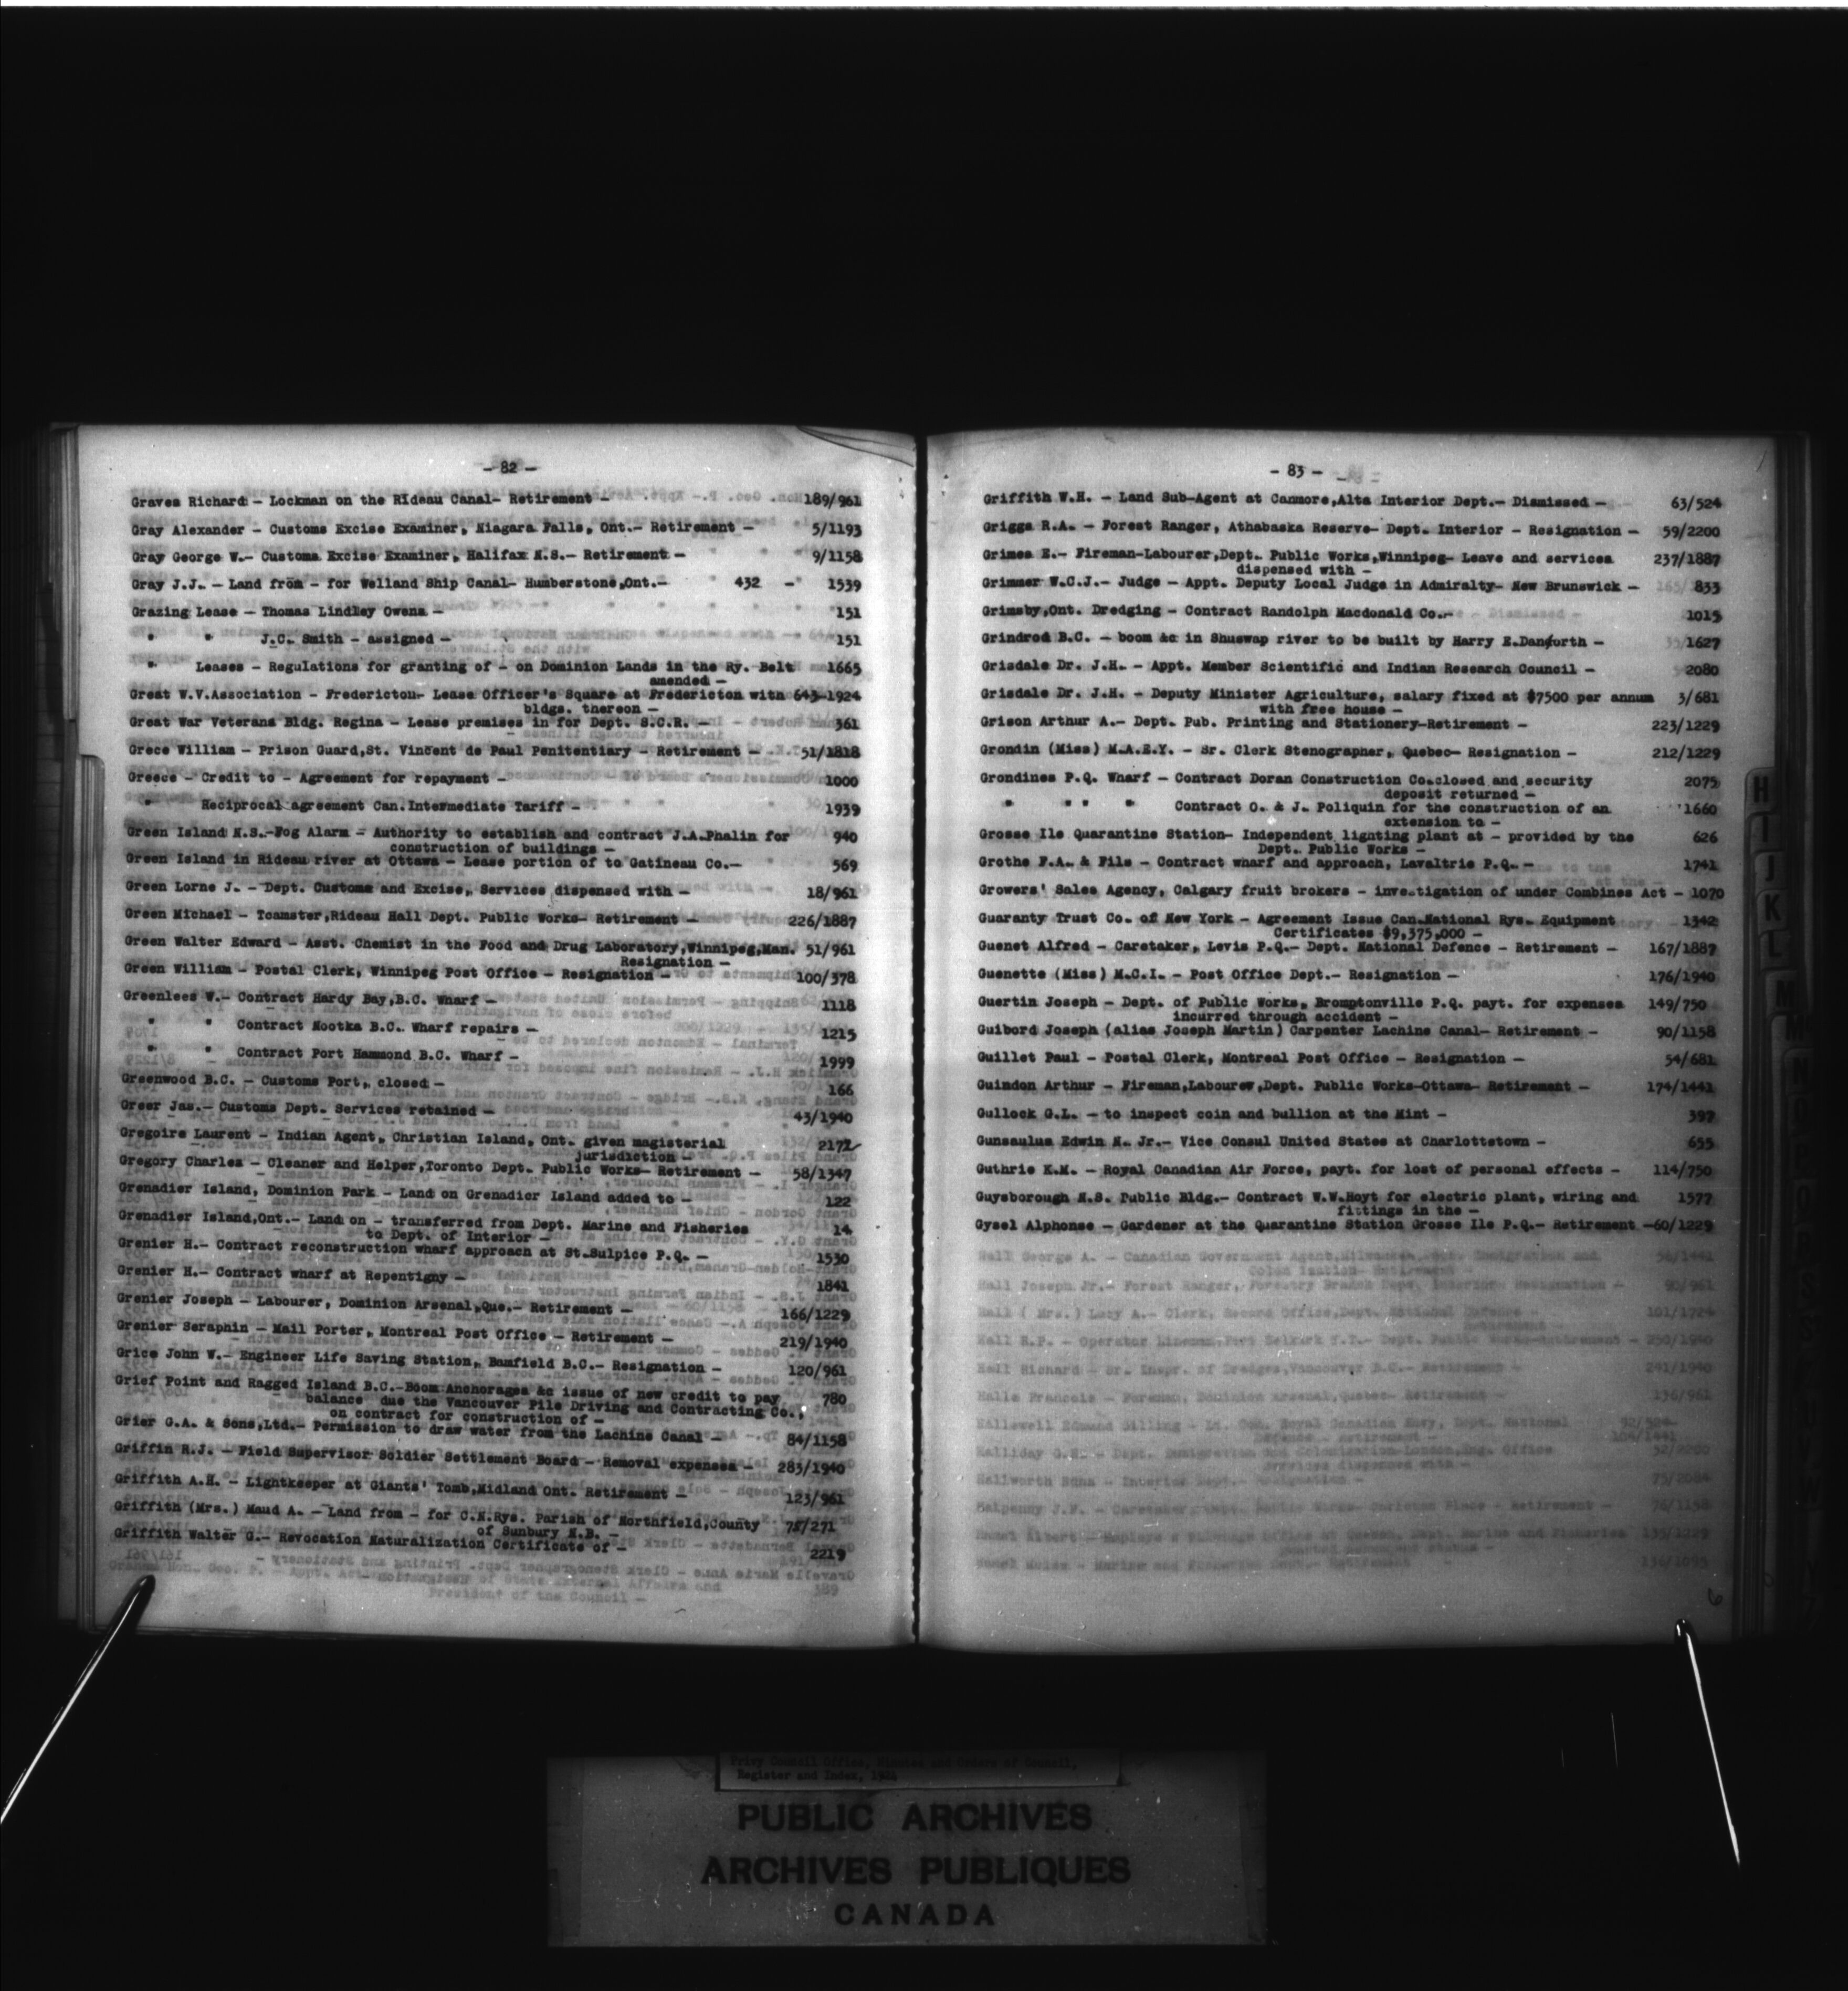 - 82 -
Graves Richard - Lockman on the Rideau Canal- Retirement - 189/961
Gray Alexander - Customs Excise Examiner, Niagara Falls, Ont.- Retirement - 5/1193
Gray George W.- Customs Excise Examiner, Halifax N.S.- Retirement - 9/1158
Gray J.J. - Land from - for Welland Ship Canal- Humberstone,Ont.- 432 - 1539
Grazing Lease - Thomas Lindley Owens - 151
" " J.C. Smith - assigned - 151
" Leases - Regulations for granting of - on Dominion Lands in the Ry. Belt 1665
amended -
Great W.V.Association - Fredericton- Lease Officer's Square at Fredericton with 643-1924
bldgs. thereon -
Great War Veterans Bldg. Regina - Lease premises in for Dept. S.C.R. - 361
Grece William - Prison Guard,St. Vincent de Paul Penitentiary - Retirement - 51/1818
Greece - Credit to - Agreement for repayment - 1000
" Reciprocal agreement Can.Intermediate Tariff - 1939
Green Island N.S.-Fog Alarm - Authority to establish and contract J.A.Phalin for 940
construction of buildings -
Green Island in Rideau river at Ottawa - Lease portion of to Gatineau Co.- 569
Green Lorne J. - Dept. Customs and Excise, Services dispensed with - 18/961
Green Michael - Teamster,Rideau Hall Dept. Public Works- Retirement - 226/1887
Green Walter Edward - Asst. Chemist in the Food and Drug Laboratory,Winnipeg,Man. 51/961
Resignation -
Green William - Postal Clerk, Winnipeg Post Office - Resignation - 100/378
Greenlees W.- Contract Hardy Bay,B.C. Wharf - 1118
" " Contract Nootka B.C. Wharf repairs - 1215
" " Contract Port Hammond B.C. Wharf - 1999
Greenwood B.C. - Customs Port, closed - 166
Greer Jas.- Customs Dept. Services retained - 43/1940
Gregoire Laurent - Indian Agent, Christian Island, Ont. given magisterial 2172
jurisdiction -
Gregory Charles - Cleaner and Helper,Toronto Dept. Public Works- Retirement - 58/1347
Grenadier Island, Dominion Park - Land on Grenadier Island added to - 122
Grenadier Island,Ont.- Land on - transferred from Dept. Marine and Fisheries 14
to Dept. of Interior -
Grenier H.- Contract reconstruction wharf approach at St.Sulpice P.Q. - 1530
Grenier H.- Contract wharf at Repentigny - 1841
Grenier Joseph - Labourer, Dominion Arsenal,Que.- Retirement - 166/1229
Grenier Seraphin - Mail Porter, Montreal Post Office - Retirement - 219/1940
Grice John W.- Engineer Life Saving Station, Bamfield B.C.- Resignation - 120/961
Grief Point and Ragged Island B.C.-Boom Anchorages &c issue of new credit to pay 780
balance due the Vancouver Pile Driving and Contracting Co.,
on contract for construction of -
Grier G.A. & Sons,Ltd.- Permission to draw water from the Lachine Canal - 84/1158
Griffin R.J. - Field Supervisor Soldier Settlement Board - Removal expenses - 283/1940
Griffith A.H. - Lightkeeper at Giants' Tomb,Midland Ont. Retirement - 123/961
Griffith (Mrs.) Maud A. - Land from - for C.N.Rys. Parish of Northfield,County 75/271
of Sunbury N.B. -
Griffith Walter G.- Revocation Naturalization Certificate of - 2219
- 83 -
Griffith W.H. - Land Sub-Agent at Canmore,Alta Interior Dept.- Dismissed - 63/524
Griggs R.A. - Forest Ranger, Athabaska Reserve- Dept. Interior - Resignation - 59/2200
Grimes E.- Fireman-Labourer,Dept. Public Works,Winnipeg- Leave and services 237/1887
dispensed with -
Grimmer W.C.J.- Judge - Appt. Deputy Local Judge in Admiralty- New Brunswick - 833
Grimsby,Ont. Dredging - Contract Randolph Macdonald Co.- 1015
Grindrod B.C. - boom &c in Shuswap river to be built by Harry E.Danforth - 1627
Grisdale Dr. J.H. - Appt. Member Scientific and Indian Research Council - 2080
Grisdale Dr. J.H. - Deputy Minister Agriculture, salary fixed at $7500 per annum 3/681
with free house -
Grison Arthur A.- Dept. Pub. Printing and Stationery-Retirement - 223/1229
Grondin (Miss) M.A.E.Y. - Sr. Clerk Stenographer, Quebec- Resignation - 212/1229
Grondines P.Q. Wharf - Contract Doran Construction Co.closed and security 2075
deposit returned -
" " " " Contract O. & J. Poliquin for the construction of an 1660
extension to -
Grosse Ile Quarantine Station- Independent lighting plant at - provided by the 626
Dept. Public Works -
Grothe F.A. & Fils - Contract wharf and approach, Lavaltrie P.Q. - 1741
Growers' Sales Agency, Calgary fruit brokers - investigation of under Combines Act - 1070
Guaranty Trust Co. of New York - Agreement Issue Can.National Rys. Equipment 1342
Certificates $9,375,000 -
Guenet Alfred - Caretaker, Levis P.Q.- Dept. National Defence - Retirement - 167/1887
Guenette (Miss) M.C.I. - Post Office Dept.- Resignation - 176/1940
Guertin Joseph - Dept. of Public Works, Bromptonville P.Q. payt. for expenses 149/750
incurred through accident -
Guibord Joseph (alias Joseph Martin) Carpenter Lachine Canal- Retirement - 90/1158
Guillet Paul - Postal Clerk, Montreal Post Office - Resignation - 54/681
Guindon Arthur - Fireman,Labourer,Dept. Public Works-Ottawa- Retirement - 174/1441
Gullock G.L. - to inspect coin and bullion at the Mint - 397
Gunsaulus Edwin N. Jr.- Vice Consul United States at Charlottetown - 655
Guthrie K.M. - Royal Canadian Air Force, payt. for lost of personal effects - 114/750
Guysborough N.S. Public Bldg.- Contract W.W.Hoyt for electric plant, wiring and 1577
fittings in the -
Gysel Alphonse - Gardener at the Quarantine Station Grosse Ile P.Q.- Retirement -60/1229
H
I
J
K
L
M
Privy Council Office, Minutes and Orders of Council,
Register and Index, 1924
PUBLIC ARCHIVES
ARCHIVES PUBLIQUES
CANADA